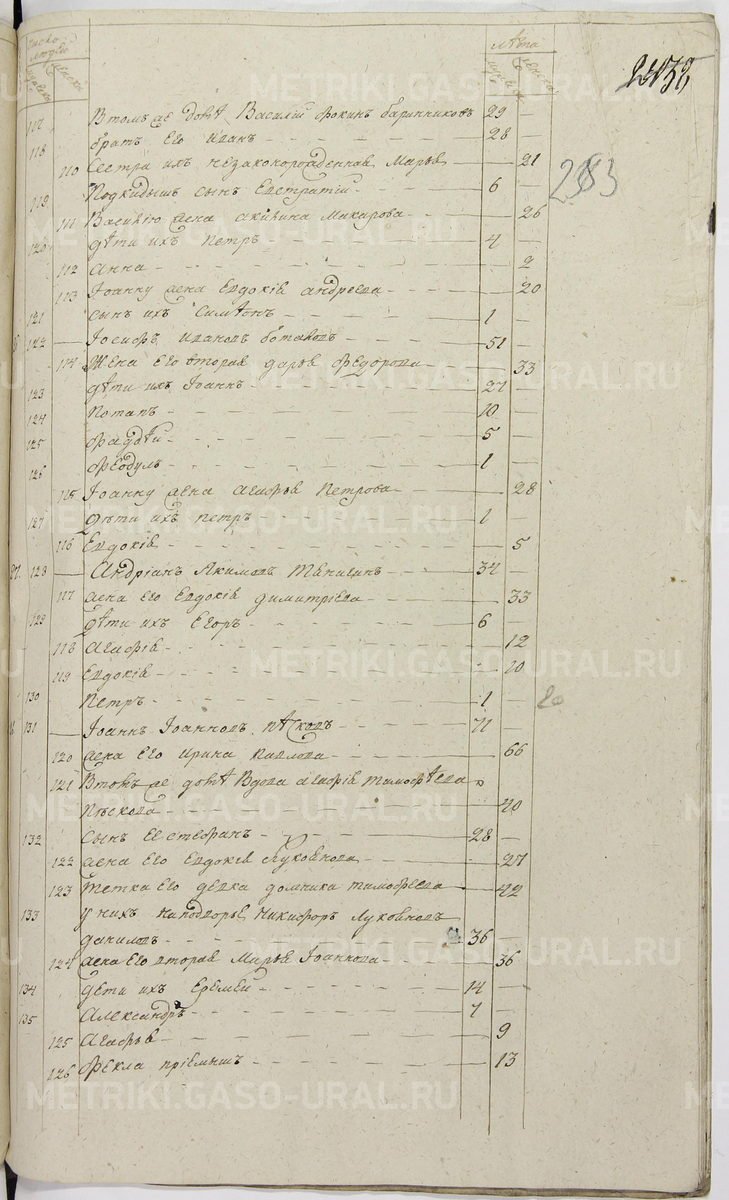 Число людей лѣта
мужска женска мужска женска
117 Втомъ же домѣ Василий Фокинъ баринниковъ 29 —
118 братъ Его Иванъ 28 —
110 Сестра ихъ незаконорожденная Марья — 21
283
119 Подкидышъ сынъ Евстратий 6 —
111 Василию жена акилина Макарова — 26
120 дѣти ихъ Петръ 4 —
112 Анна — 2
113 Iоанну жена Евдокiя андреева — 20
121 сынъ ихъ Симеонъ 1 —
122 Iосифъ Ивановъ 51 —
114 Жена Его вторая дарья Федорова — 33
123 дѣти ихъ Iоаннъ 27 —
124 Потапъ 10 —
125 5 —
126 Феодулъ 1 —
115 Iоанну жена Агафья Петрова — 28
127 дѣти ихъ петръ 1 —
116 Евдокiя — 5
27. 128 Андрiанъ Якимовъ 34 —
117 жена Его Евдокiя димитрiева — 33
129 дѣти ихъ Егоръ 6 —
118 Агафiя — 12
119 Евдокiя — 10
130 Петръ 1 —
131 Iоаннъ Iоанновъ пѣсковъ 71
120 жена Его Ирина Павлова — 66
121 Втомъ же домѣ Вдова Агафiя тимофѣева
Пѣскова — 40
132 Сынъ Ея стефанъ 28 —
122 жена Его Евдокiя Луковнова — 27
123 тетка Его девка домника тимофеева 42
133 у нихъ наподворье Никифоръ Луковновъ
даниловъ 36 —
124 жена Его вторая Марья Iоаннова — 36
134 дети ихъ Еремей 14 —
135 Александръ 7 —
125 Агафья — 9
126 Фекла прiемышъ — 13
METRIKI.GASO-URAL.RU